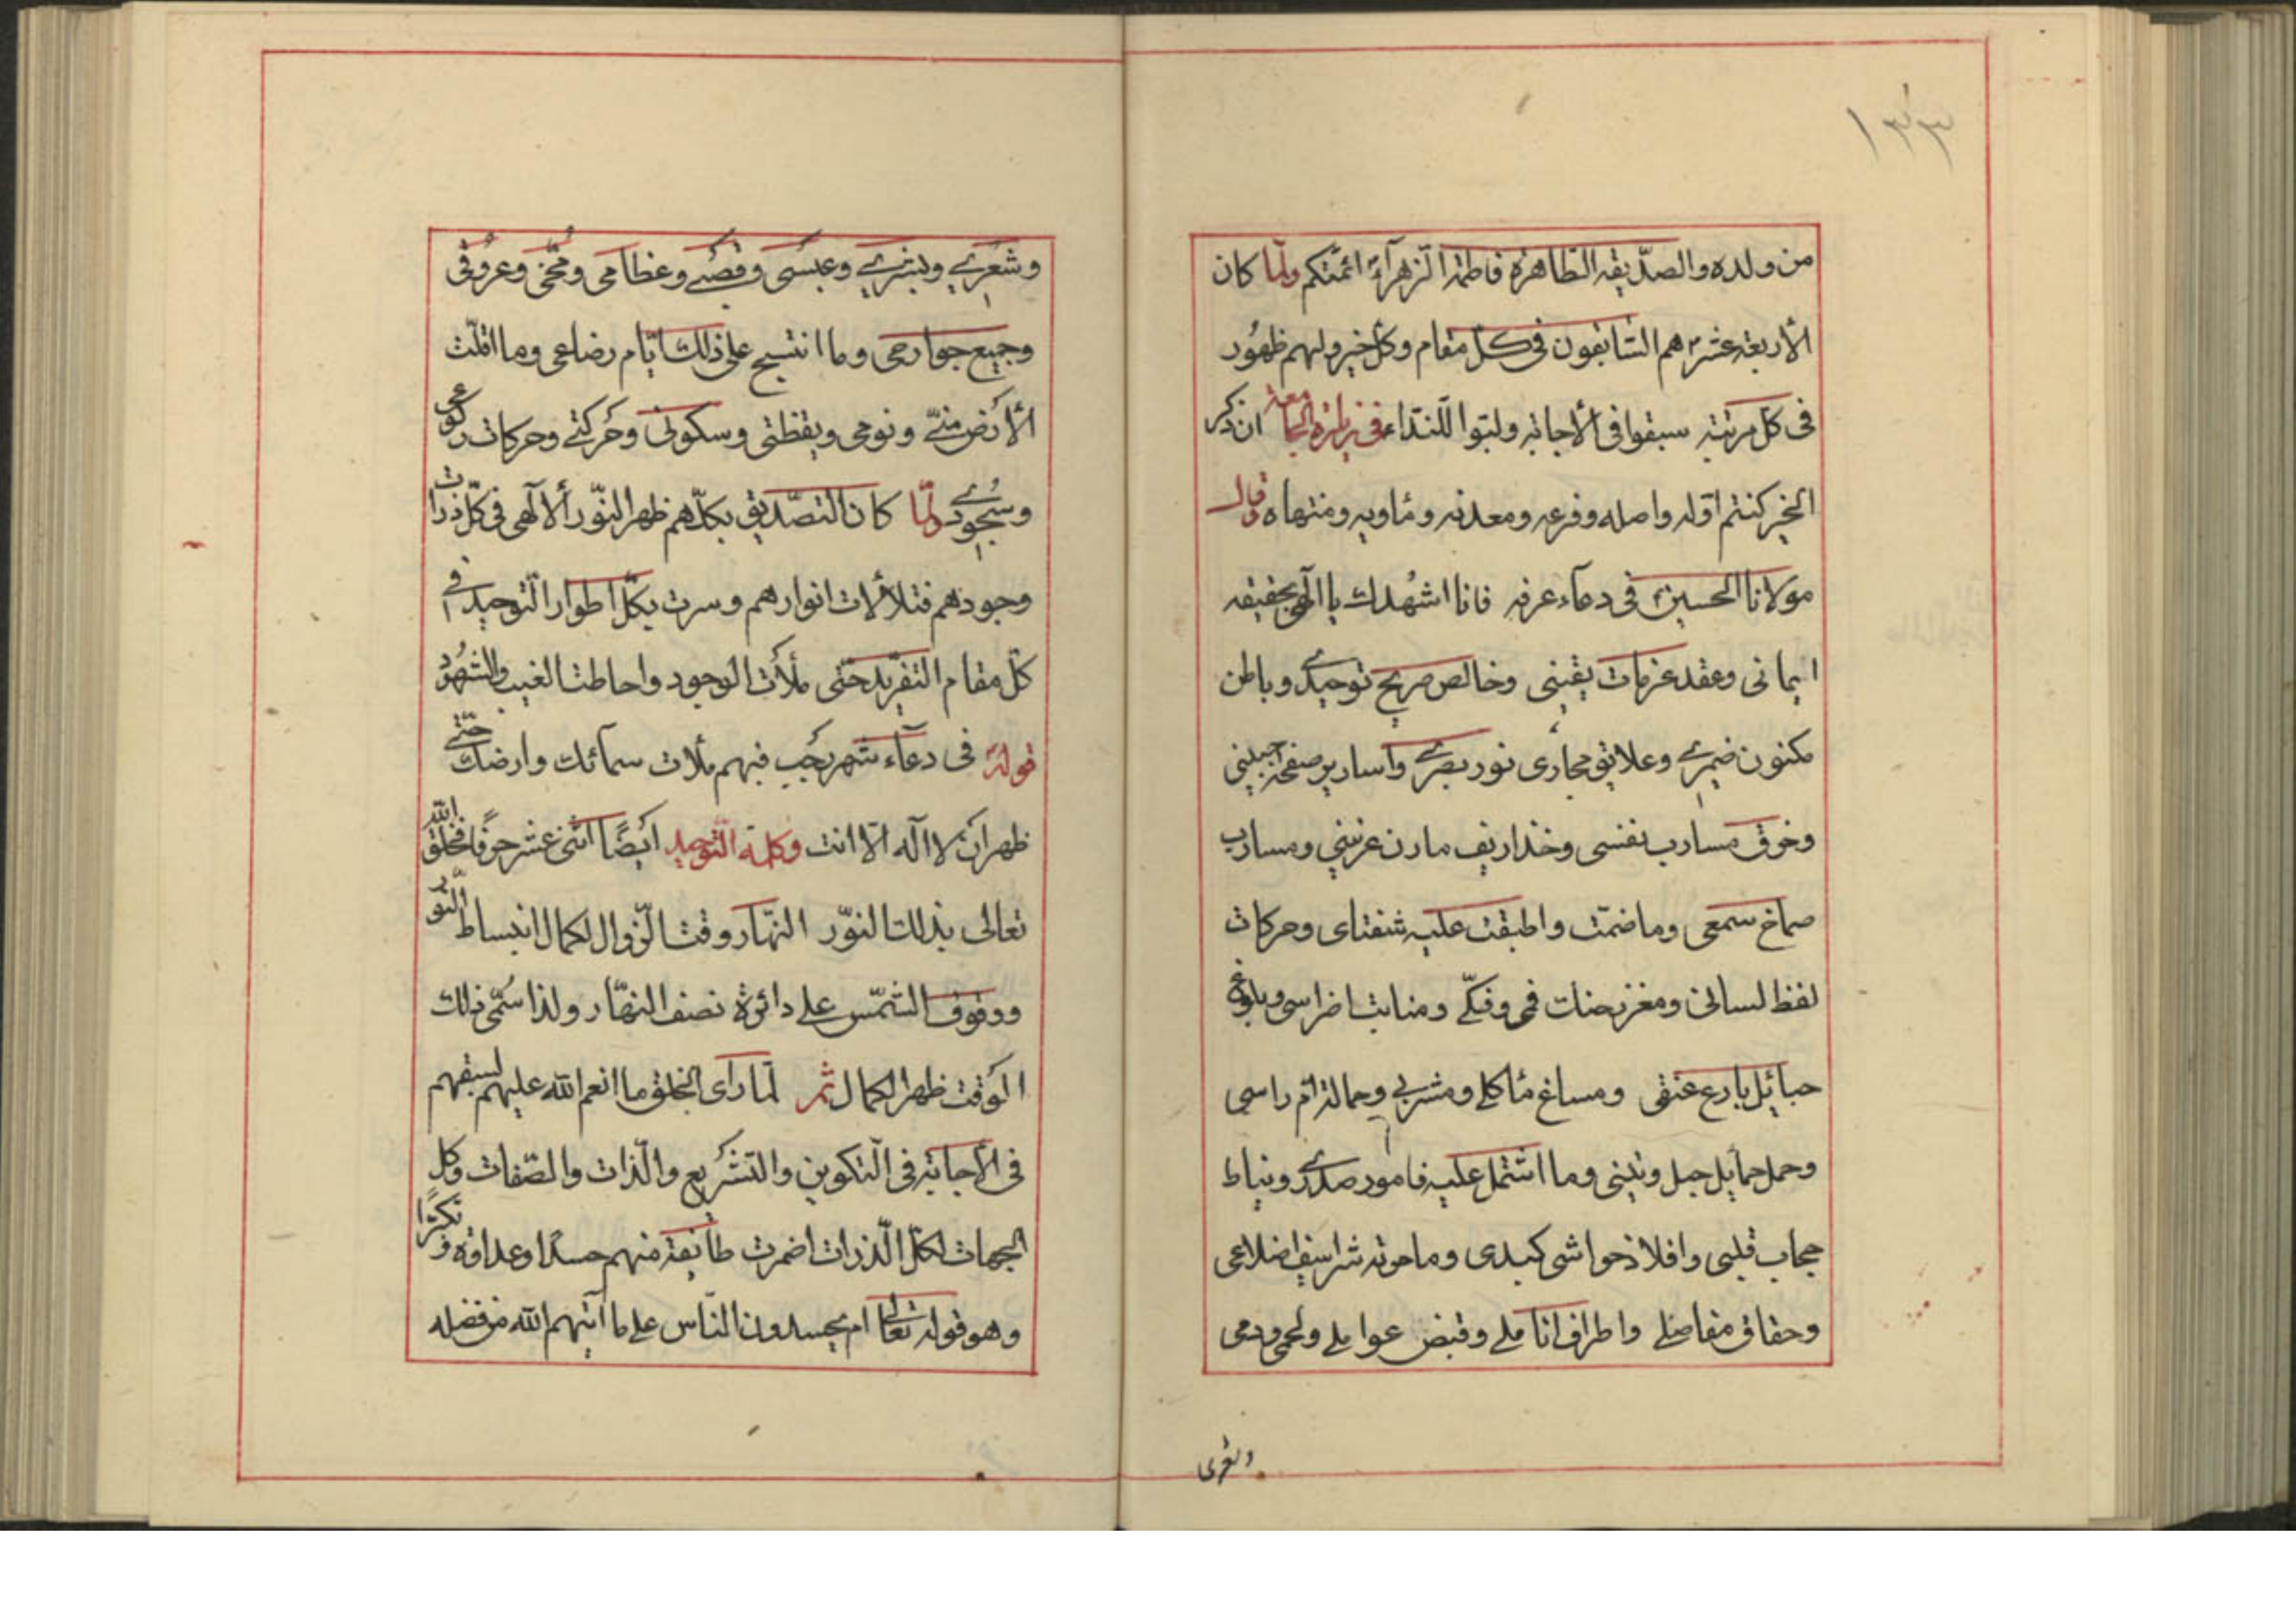 ١٣٣
من ولده والصدّيقة الطاهرة فاطمة الزهرآء ائمّتكم ولمّا كان
الأربعة عشر هم السّابقون فى كلّ مقام وكل خير ولهم ظهُور
فى كل مرتبة سبقوا فى الأجابة ولبّوا للنّداء ففى زيارة الجامعة ان ذكر
الخير كنتم اوّله واصله وفرعه ومعدنه ومأويه ومنتهاه وقال
مولانا الحسين فى دعآء عرفه فانا اشهُدك يا الهى بحقيقه
ايمانى وعقد عزمات يقينى وخالص صريح توحيدى وباطن
مكنون ضميرى وعلائق مجارى نور بصرى واسارير صفحة جبينى
وخرق مسارب نفسى وخذاريف مارن عرنينى ومسارب
صماخ سمعى وما ضمّت واطبقت عليه شفتاى وحركات
لفظ لسانى ومغرز حنك فمى وفكّى ومنابت اضراسى وبلوغ
حبائل بارع عنقى ومساغ مأكلى ومشربى وحمالة امّ راسى
وحمل حمايل حبل وتينى وما اشتمل عليه تامور صدرى ونياط
حجاب قلبى وافلاذ حواشى كبدى وما حوته شراسيف اضلاعى
وحقاق مفاصلى واطراف اناملى وقبض عواملى ولحمى ودمى
وشعرى
وشعرى وبشرى وعصبى وقصبى وعظامى ومُخّى وعروقى
وجميع جوارحى وما انتسج على ذلك ايّام رضاعى وما اقلّت
الأرض منّى ونومى ويقظتى وسكونى وحركتى وحركات ركوعى
وسُجودى ولمّا كان التصّديق بكلّهم ظهر النّور الألهى فى كلّ ذرات
وجودهم فتلألأت انوارهم وسرت بكلّ اطوار التّوحيد فى
كلّ مقام التفريد حتّى ملأت الوجود واحاطت الغيب والشهُود
قوله فى دعآء شهر رجب فبهم ملات سمآئك وارضك حتّى
ظهر ان لا اله الّا انت وكلمة التّوحيد ايضًا اثنى عشر حرفًا فخلق الله
تعالى بذلك النّور النهّار وقت الزّوال لكمال انبساط النّور
ووقوف الشمّس على دائرة نصف النهّار ولذا سُمّى ذلك
الوقت ظهر الكمال ثمّ لمّا راى الخلق ما انعم الله عليهم لسبقهم
فى الأجابة فى التّكوين والتشريع والّذات والصّفات وكل
الجهات لكلّ الّذرات اضمرت طآئفة منهم حسدًا وعداوة وتكبّرًا
وهو قوله تعالى ام يحسدون النّاس على ما آتيهم الله من فضله